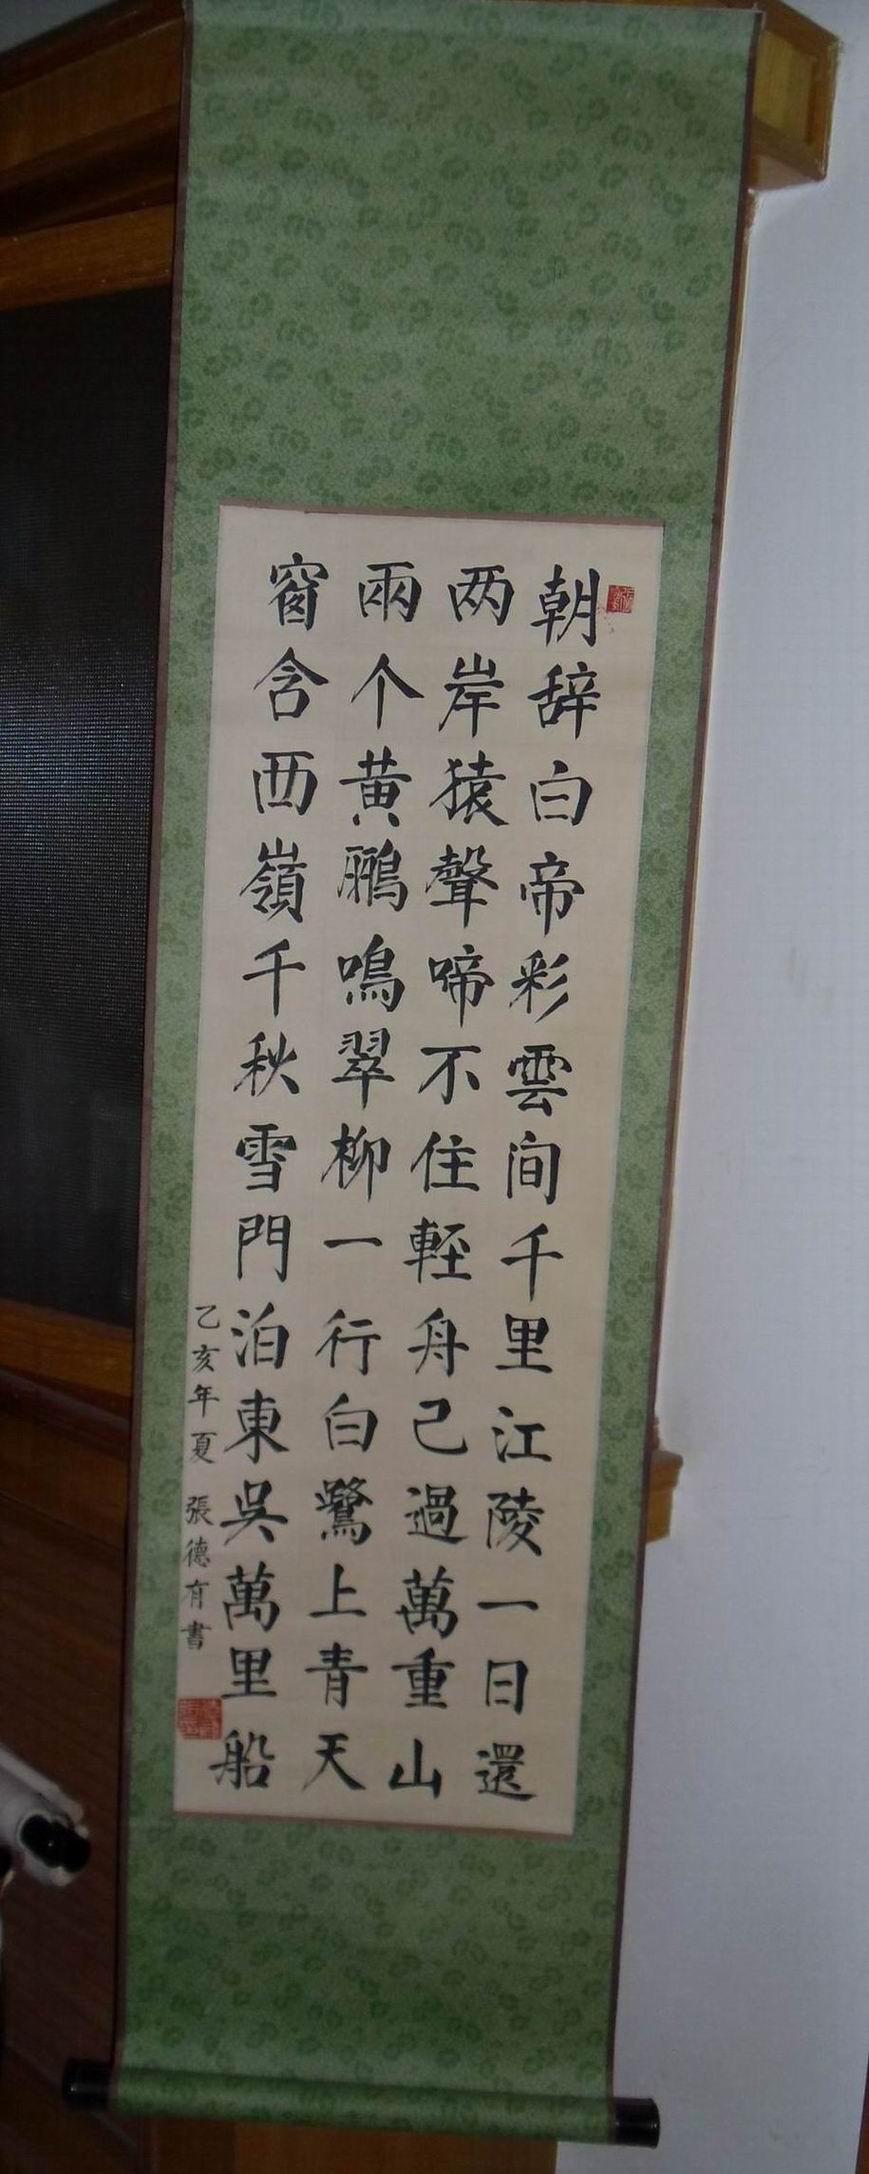 朝辞白帝彩雲间千里江陵一日還
两岸猿聲啼不住輕舟己過萬重山
兩个黄鵬鳴翠柳一行白鷺上青天
窗含西嶺千秋雪門泊東吳萬里船
乙亥年夏 張德有書